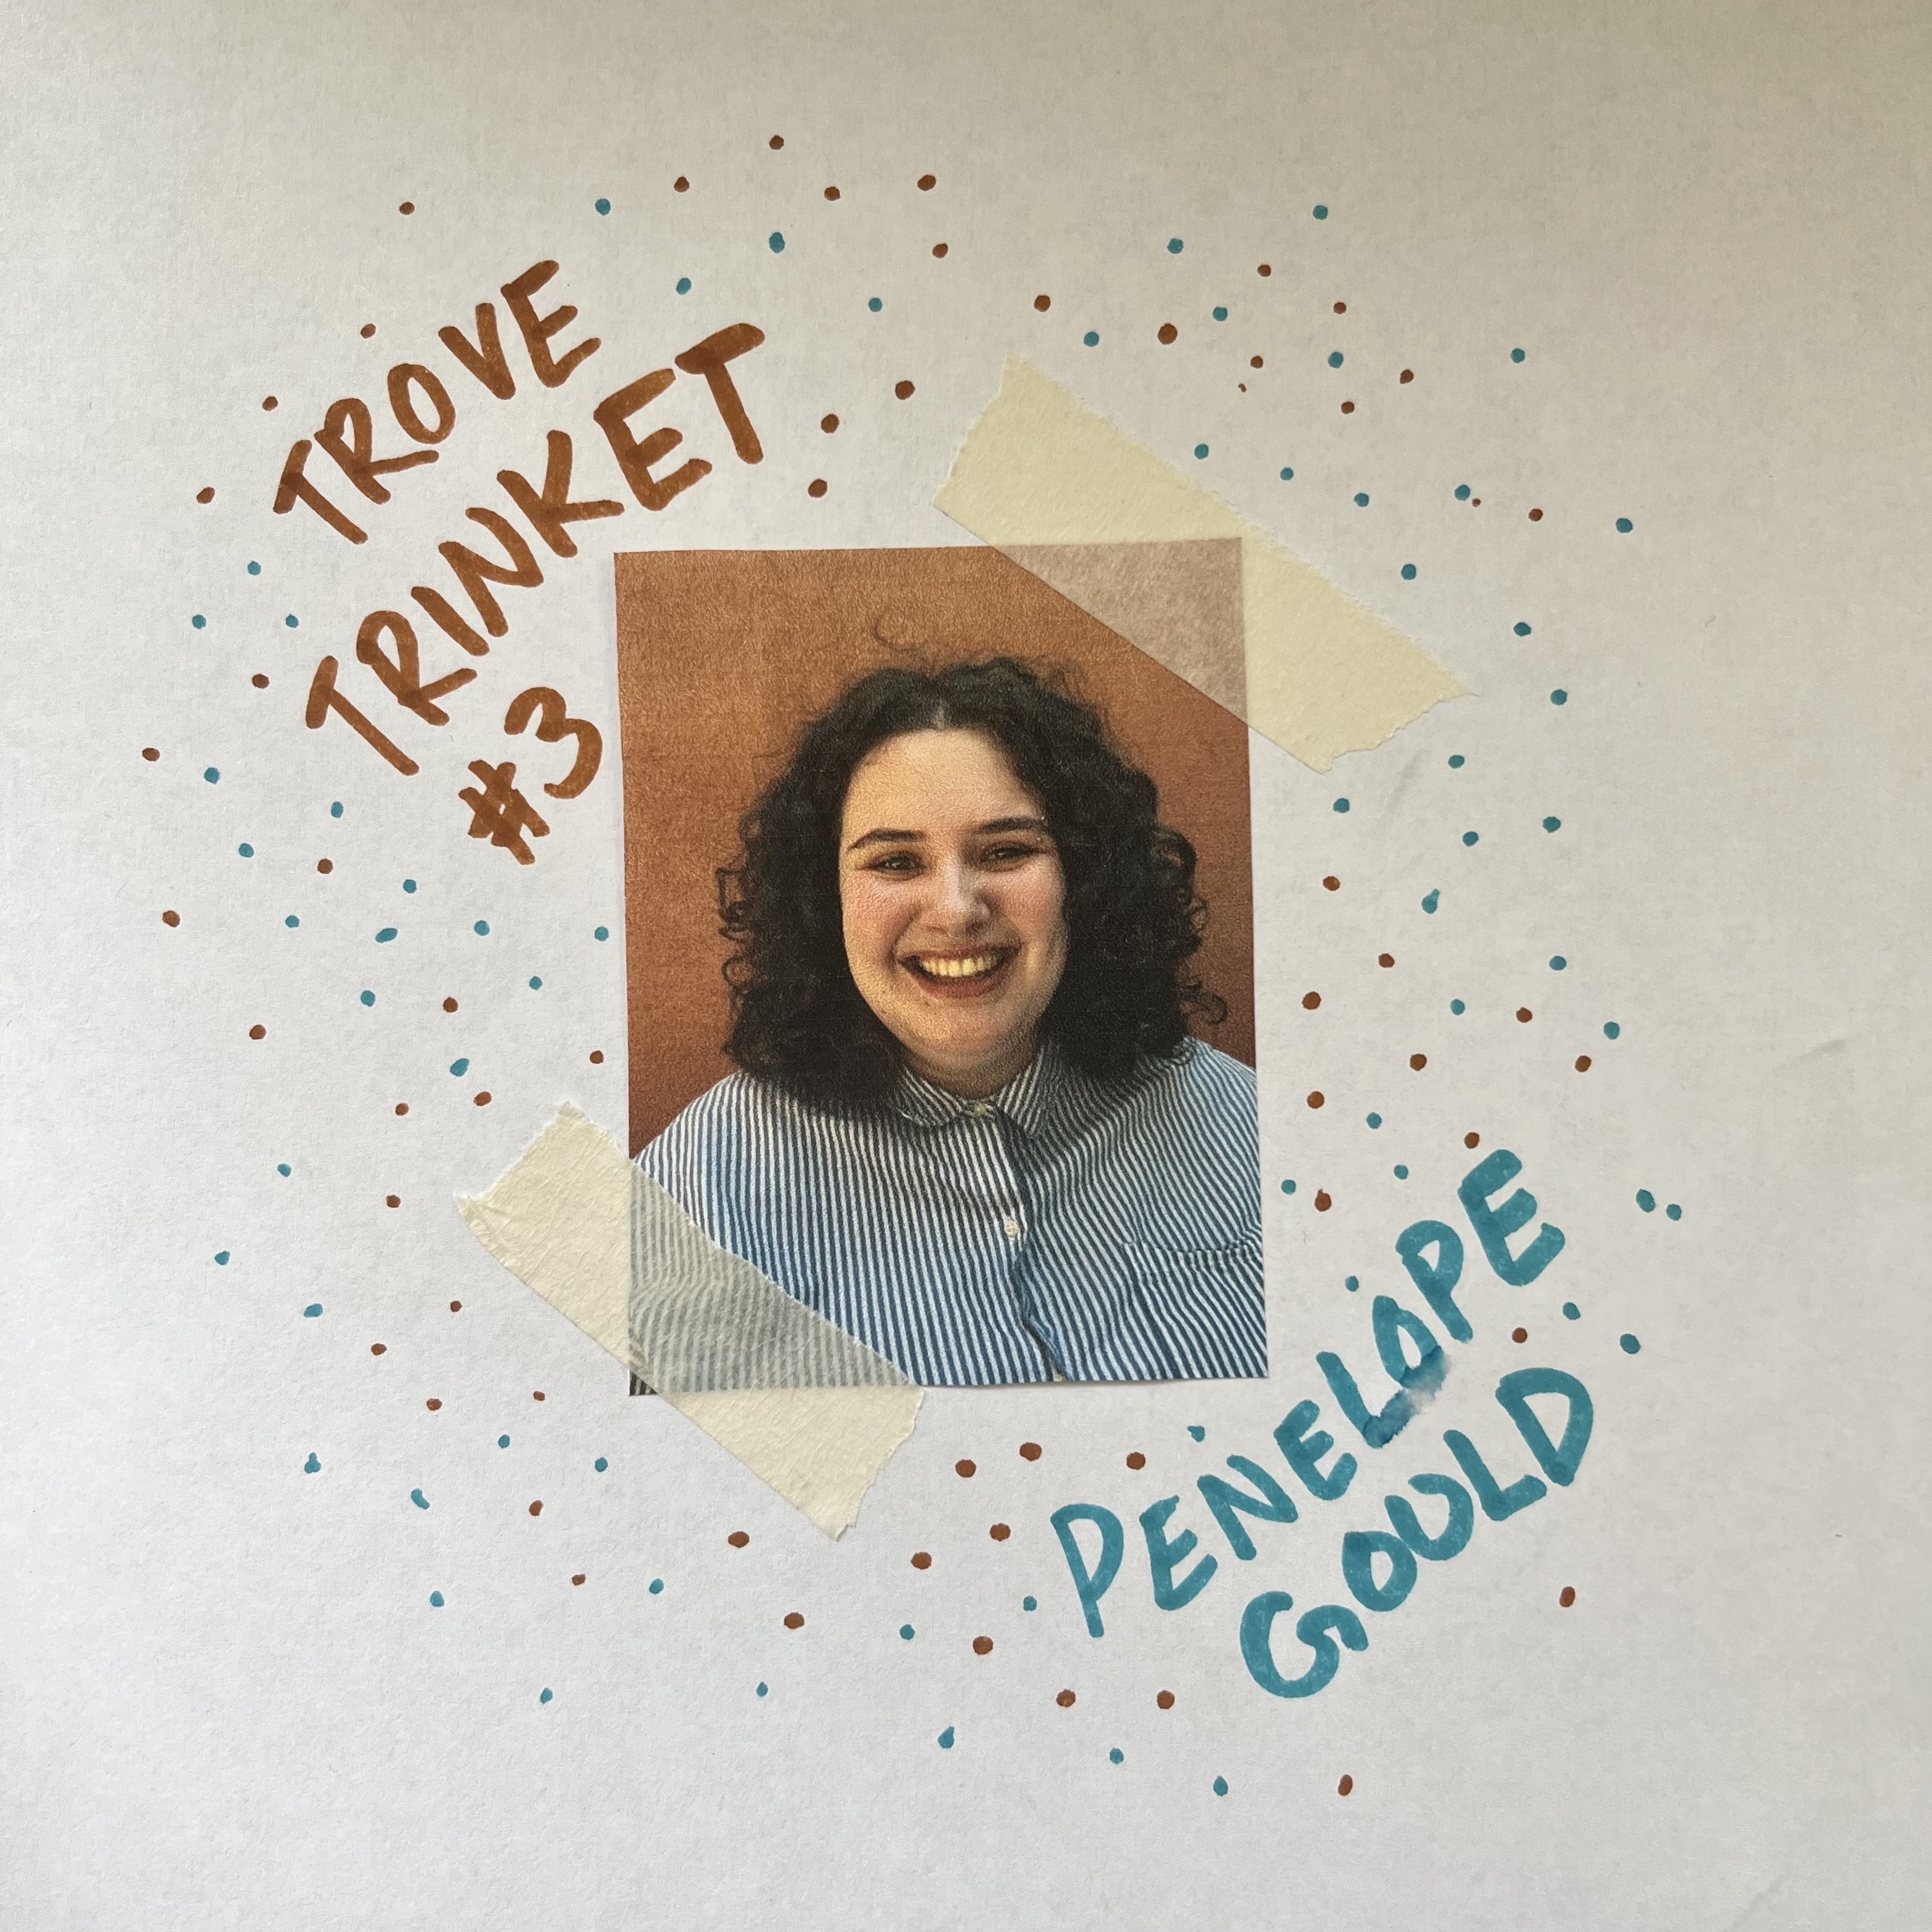 TROVE
TRINKET
#3
PENELOPE
GOULD